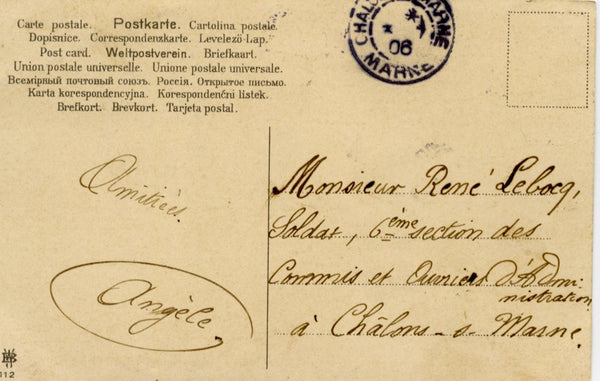 Carte postale. Postkarte. Cartolina postale.
Dopisnice. Correspondenzkarte. Levelező-Lap.
Post card. Weltpostverein. Briefkaart.
Union postale universelle. Unione postale universale.
Всемірный почтовый союзъ. Россія. Открытое письмо.
Karta korespondencyjna. Korespondenčni listek.
Brefkort. Brevkort. Tarjeta postal.
MARNE
06
MARNE
Amitiés.
Angèle.
Monsieur René Lebocq,
Soldat, 6ème section des
Commis et Ouvriers d'Admi-
nistration
à Châlons-s-Marne.
112